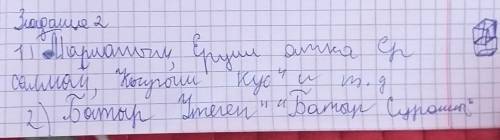 Задание 2
1) Шарлатыны, Ерулы атка Ер
салмай, Кыран кус" и т.д
2) Батыр Утеген" "Батыр Сураншы"